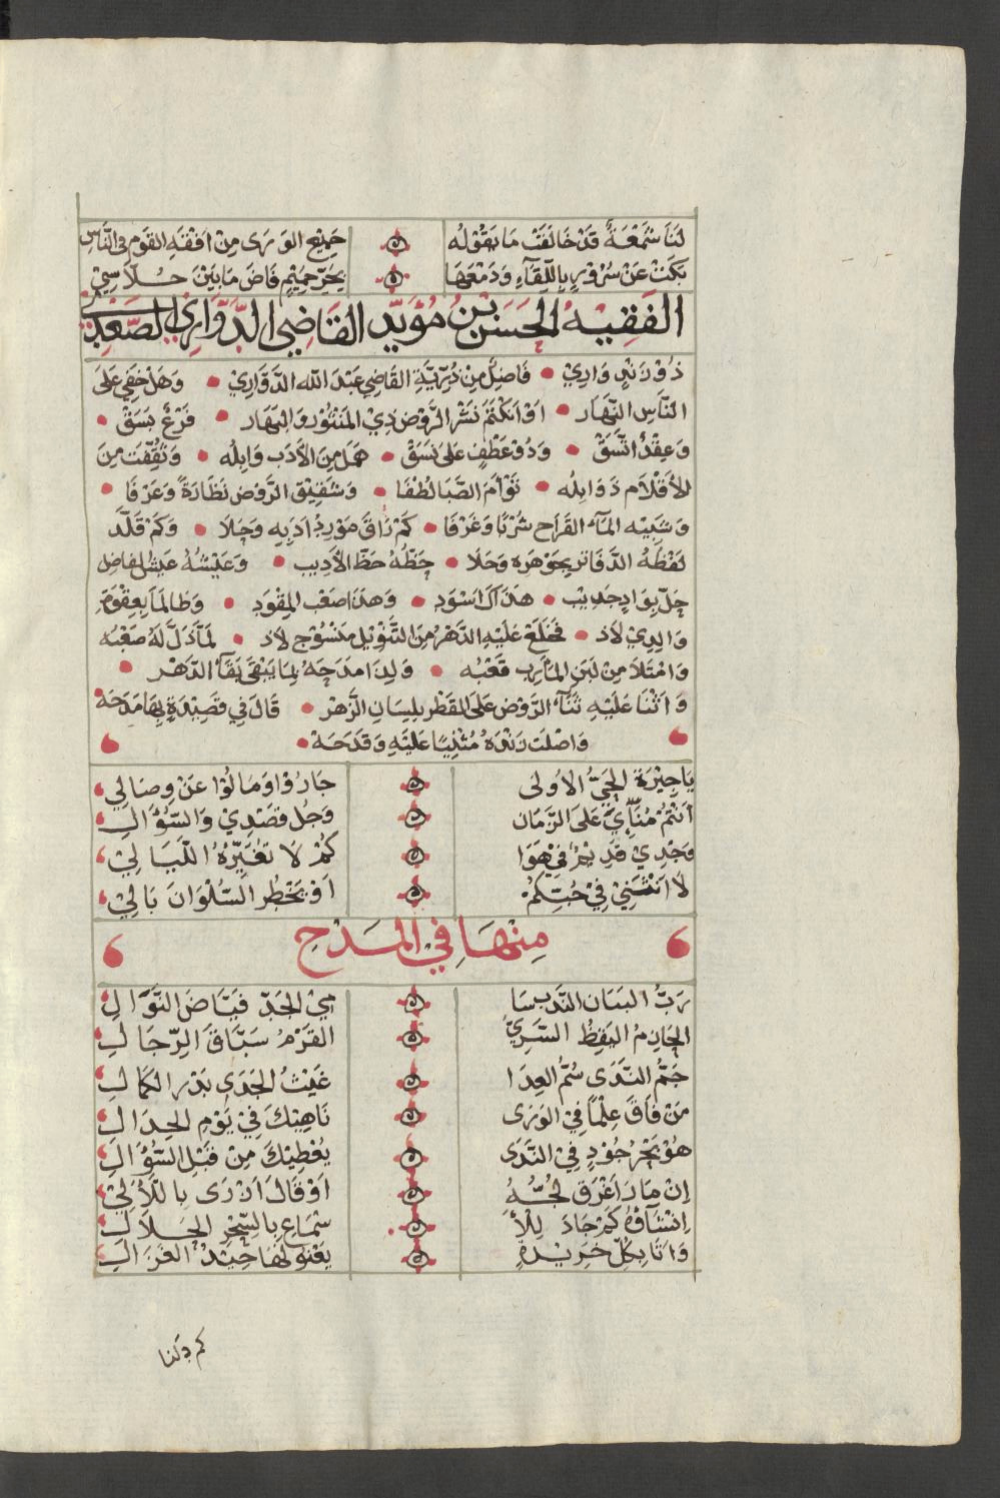 لَنَا شَمْعَةٌ قَدْ خَالَفَتْ مَا بَقُوْلُه جَمِيْعِ الوَرَى مِنْ اَفْقَهِ القَوْمِ فِي النَّاسِ
بَكَتْ عَنْ سُرُوْرٍ بِاللِّقَآءِ وَدَمْعَهَا بِحَرِّ حَمِيْمٍ فَاضَ مَا بَيْنَ جُلَّاسِيْ
الفَقِيْهُ الحَسَن بْن مُؤَيَّد القَاضِي الدَّوَّارِي الصَّعْدِي
ذُوْ زَنْدٍ وَارِيْ • فَاضِلٌ مِنْ ذُرِّيَّةِ القَاضِي عَبْدَ الله الدَّوَّارِيْ • وَهَلْ خَفِيَ عَلَى
النَّاسِ النَّهَار • اَوْ انْكَتَمَ نَشْر الرَّوْض ذِيْ المَنْثُوْر وَالبَهَار • فَرْعٌ بَسَقْ •
وَعِقْدٌ اتَّسَقْ • وَذُوْ عَطْفٍ عَلَى نَسَقْ • هَمَل مِنَ الأَدَب وَابِلُه • وَثُقِّفَتْ مِنَ
الأَقْلَام ذَوَابِلُه • تَوْأَم الصَّبَا لُطْفَا • وَشَقِيْق الرَّوْض نَظَارَةً وَعَرْفَا •
وَشَبِيْه المَآء القَرَاح شُرْبًا وَغَرْفَا • كَمْ رَاقَ مَوْرِدُ ادَبِه وَحَلَا • وَكَمْ قَلَّدَ
لَفْظُهُ الدَّفَاتِر بِجَوْهَرِهِ وَحَلَا • حَظُّهُ حَظّ الأَدِيب • وَعَيْشُهُ عَيْشُ الفَاضِل
حَلّ بِوَادٍ جَدِيْب • هَذَا لَك اَسْوَد • وَهَذَا صَعْب المِقْوَدِ • وَطَالَمَا بِعِقْوَةِ
وَالِدِيْ لَاذ • فَخَلَعَ عَلَيْهِ الدَّهْرُ مِنَ التَّنْوِيْلِ مَنْسُوْجِ لاَذ • لَمَا ذَلَّ لَهُ صَعْبُه
وَامْتَلَأ مِنْ لَبَنِ المَآرِب قَعْبُه • وَلِذَا مَدَحَهُ بِمَا يَبْقَى بَقَآءُ الدَّهْر •
وَاثْنَا عَلَيْهِ ثَنَآءُ الرَّوْض عَلَى القَطْر بِلِسَانِ الزَّهْر • قَالَ فِي قَصِيْدَةٍ بِهَا مَدَحَهْ
وَاصْلَتَ زَنْدَهُ مُثْنِيًا عَلَيْهِ وَقَدَحَهْ •
يَا جِيْرَةَ الحَيِّ الأُولَى جَارُوْا وَمَالُوْا عَنْ وِصَالِي
اَنْتُمْ مُنَآيَ عَلَى الزَّمَان وَجُلّ قَصْدِيْ وَالسُّؤَال
وَجْدِيْ قَدِيْمٌ فِيْ هَوَا كُمْ لَا تُغَيِّرُهُ اللَّيَالِيْ
لاَ انْثَنِيْ فِيْ حُبِّكُمْ اَوْ يَخْطُر السُّلْوَانَ بَالِيْ
مِنْهَا فِي المَدْحِ
رَبُّ البَنَان النَّدِيسَا مِيْ الجَدّ فَيَّاضَ النَّوَالِ
الحَازِمُ اليَقِظُ السَّرِيُّ القَرْمُ سَبَّاقَ الرِّجَالِ
جَمُّ النَّدَى سُمُّ العِدَا غَيْثُ الجَدَى بَدْر الكَمَال
مَنْ فَاقَ عِلْمًا فِيْ الوَرَى نَاهِيْكَ فِيْ يَوْمِ الجِدَالِ
هُوْ بَحْرُ جُوْدٍ فِيْ النَّدَى يُعْطِيْكَ مِنْ قَبْلِ السُّؤَال
اِنْ مَارَ اَغْرَقَ لُجُّهُ اَوْ قَالَ اَزْرَى بِاللَّأَلِيْ
اِنْشَآؤُهُ كَمْ جَادَ لِلْأَ سْمَاعِ بِالسِّحْر الحَلَالِ
وَاتَا بِكُلّ خَرِيْدَةٍ يَعْنُو لَهَا جِيْدُ الغَزَالِ
كم دلنا